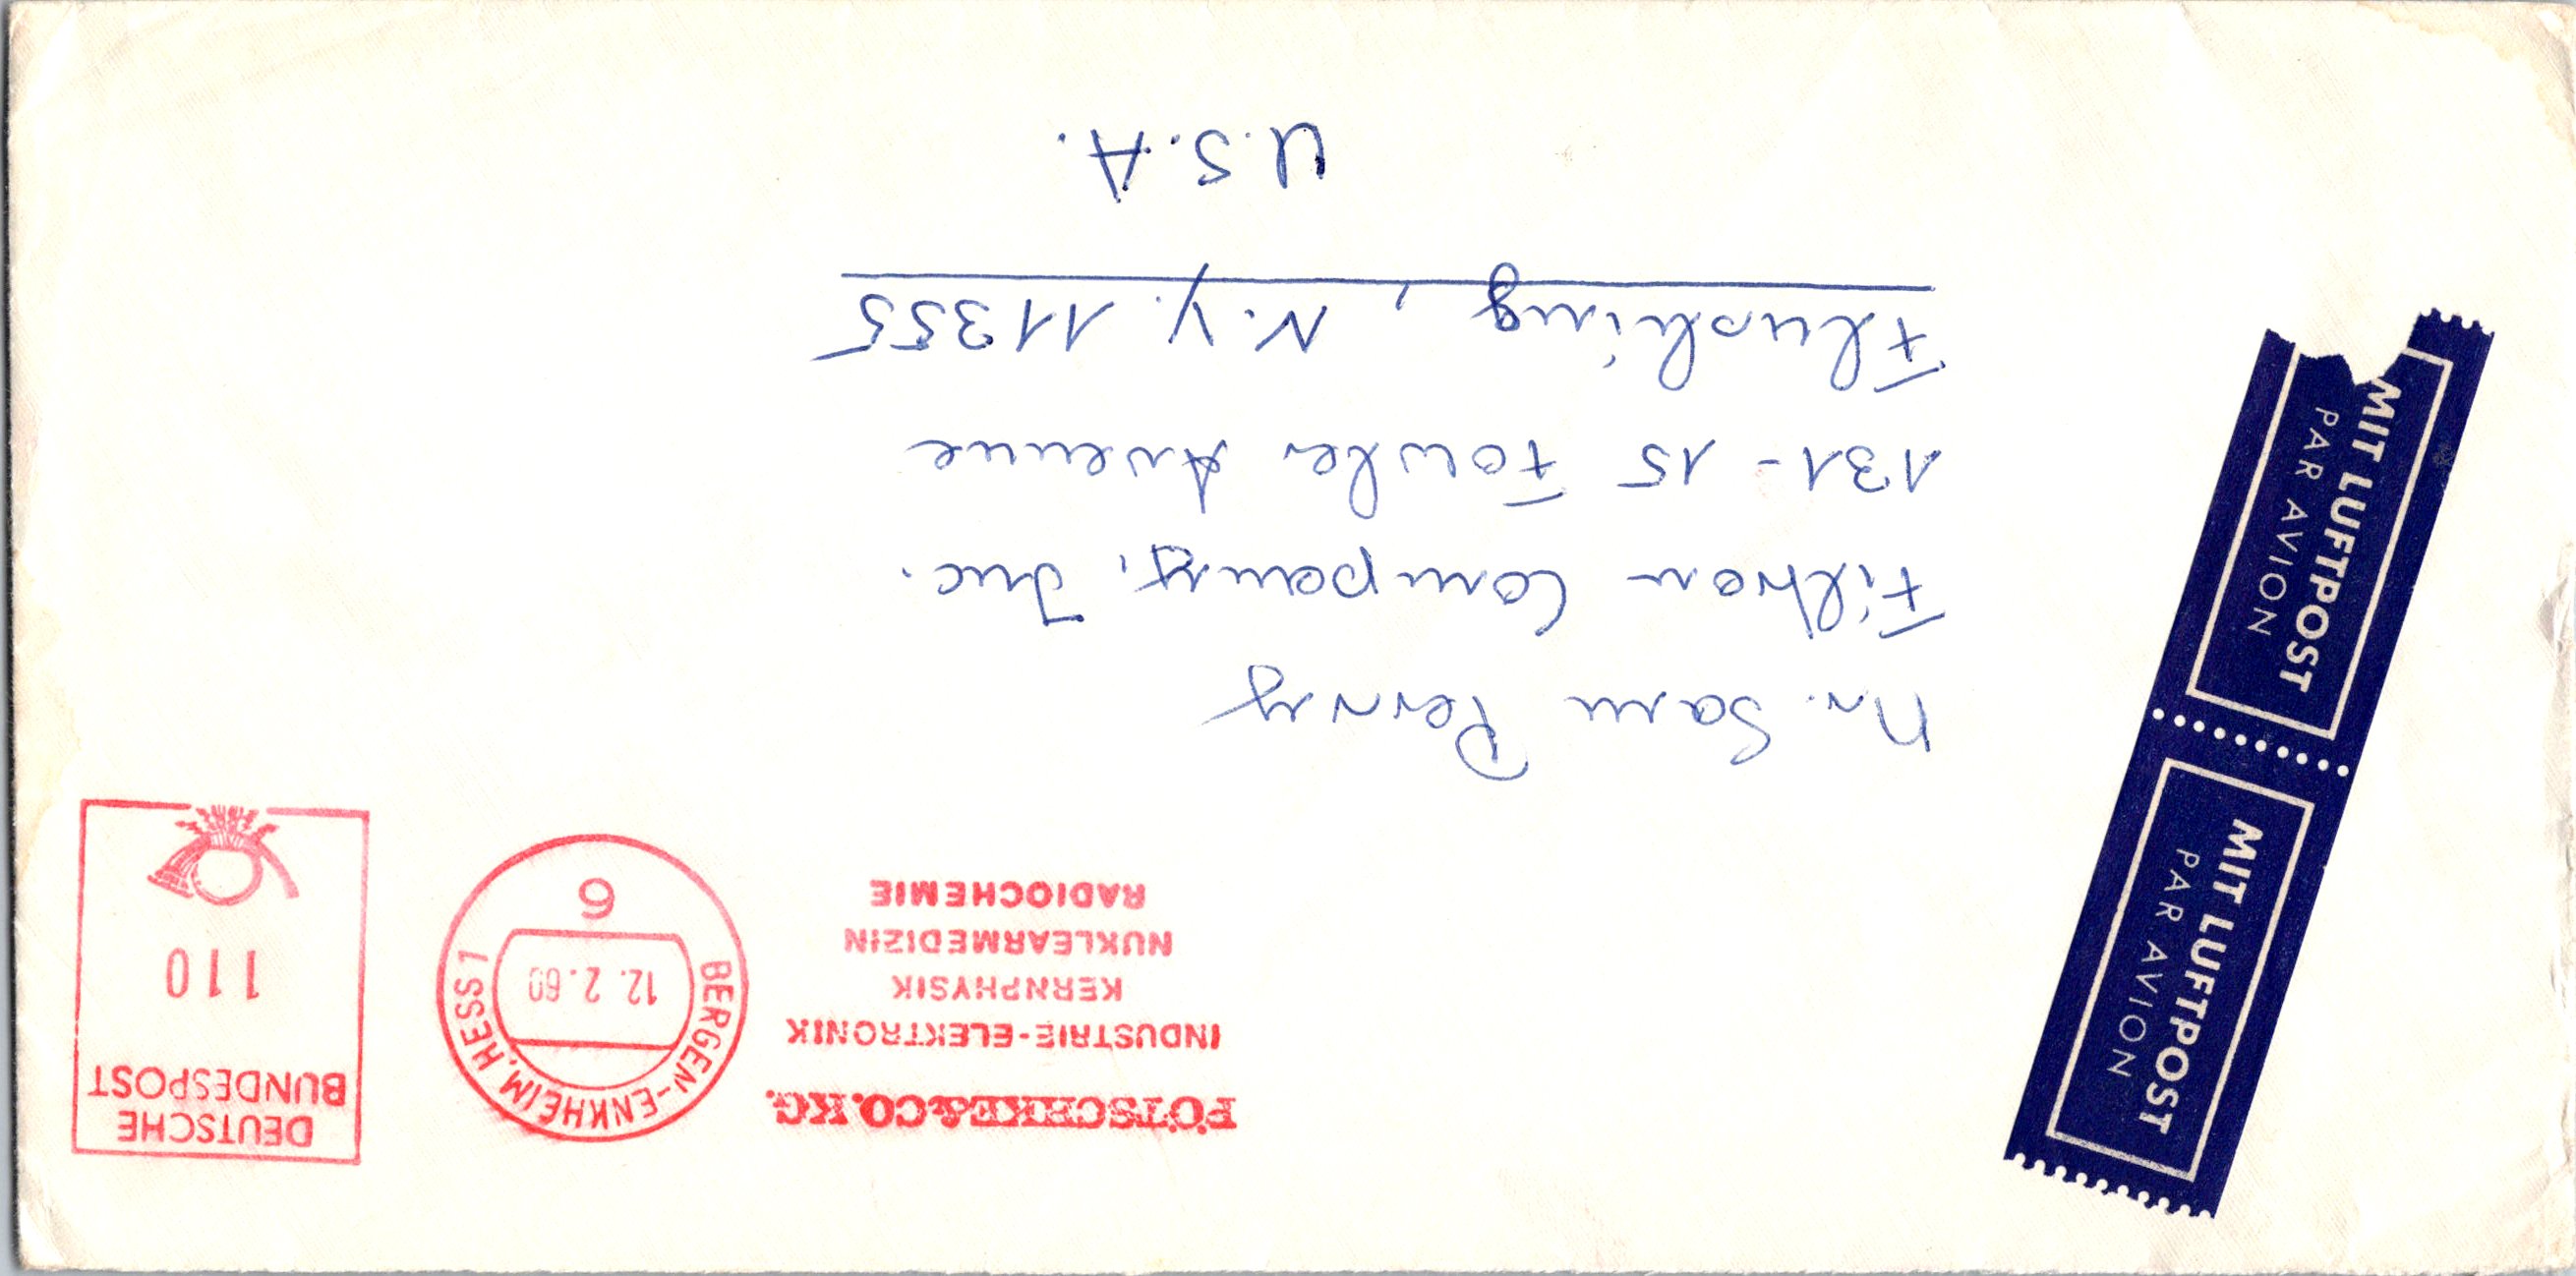 PÖTSCHKE & CO. KG.
INDUSTRIE-ELEKTRONIK
KERNPHYSIK
NUKLEARMEDIZIN
RADIOCHEMIE
BERGEN-ENKHEIM, HESS 1
12. 2. 69
6
DEUTSCHE
BUNDESPOST
110
MIT LUFTPOST
PAR AVION
MIT LUFTPOST
PAR AVION
Mr. Sam Perry
Filtron Company, Inc.
131-15 Fowler Avenue
Flushing, N.Y. 11355
U.S.A.